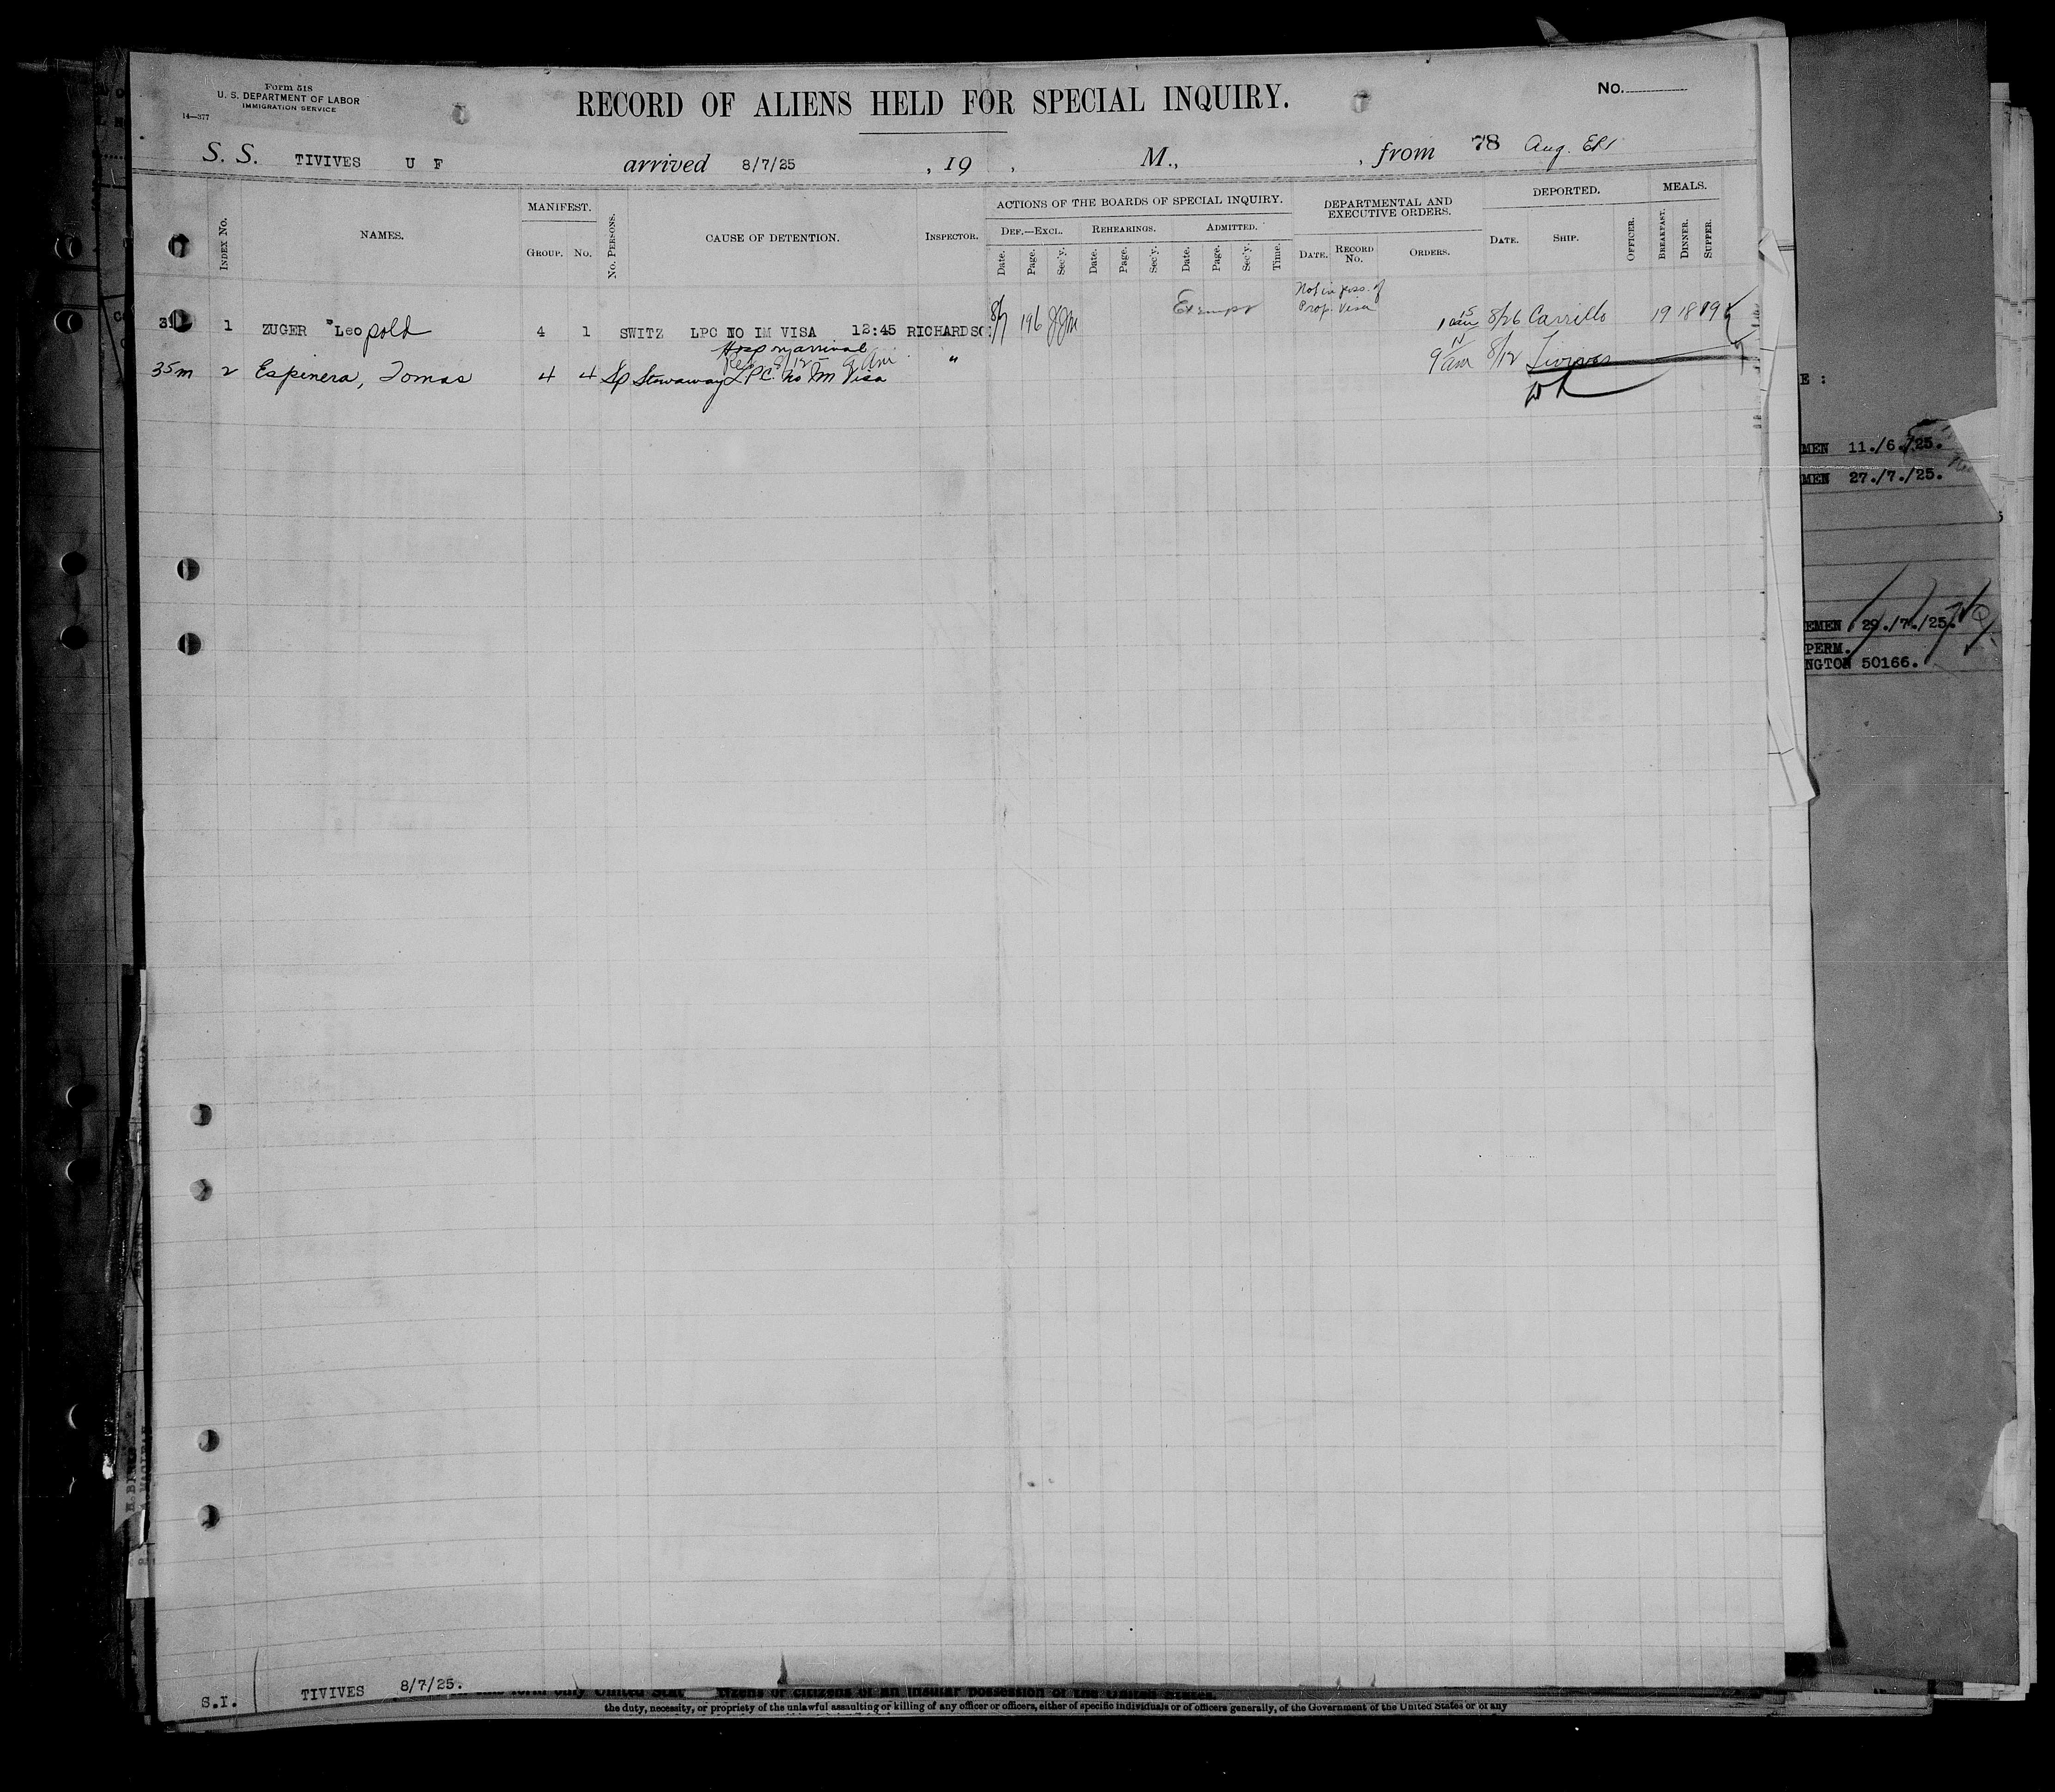 Form 518
U. S. DEPARTMENT OF LABOR
IMMIGRATION SERVICE
14—377
RECORD OF ALIENS HELD FOR SPECIAL INQUIRY.
No.
S. S. TIVIVES U F arrived 8/7/25 , 19 , M., , from 78 Aug.
Index No.
NAMES.
MANIFEST.
Group. No.
No. Persons.
CAUSE OF DETENTION.
Inspector.
ACTIONS OF THE BOARDS OF SPECIAL INQUIRY.
Def.—Excl. Rehearings. Admitted.
Date. Page. Sec'y. Date. Page. Sec'y. Date. Page. Sec'y. Time.
DEPARTMENTAL AND
EXECUTIVE ORDERS.
Date. Record No. Orders.
DEPORTED.
Date. Ship. Officer.
MEALS.
Breakfast. Dinner. Supper.
Not in poss. of
Prop. Visa
1 ZUGER Leopold 4 1 SWITZ LPC NO IM VISA 12:45 RICHARDSO 8/7 196 JJM 8/26 Carrillo 19 18 19
Hosp on arrival
35m 2 Espinera, Tomas 4 4 Sp Stowaway LPC. No Im Visa " 9 am 8/12 Tivives
E :
MEN 11./6./25.
MEN 27./7./25.
EMEN 29./7./25.
PERM.
NGTON 50166.
S.I. TIVIVES 8/7/25.
the duty, necessity, or propriety of the unlawful assaulting or killing of any officer or officers, either of specific individuals or of officers generally, of the Government of the United States or of any